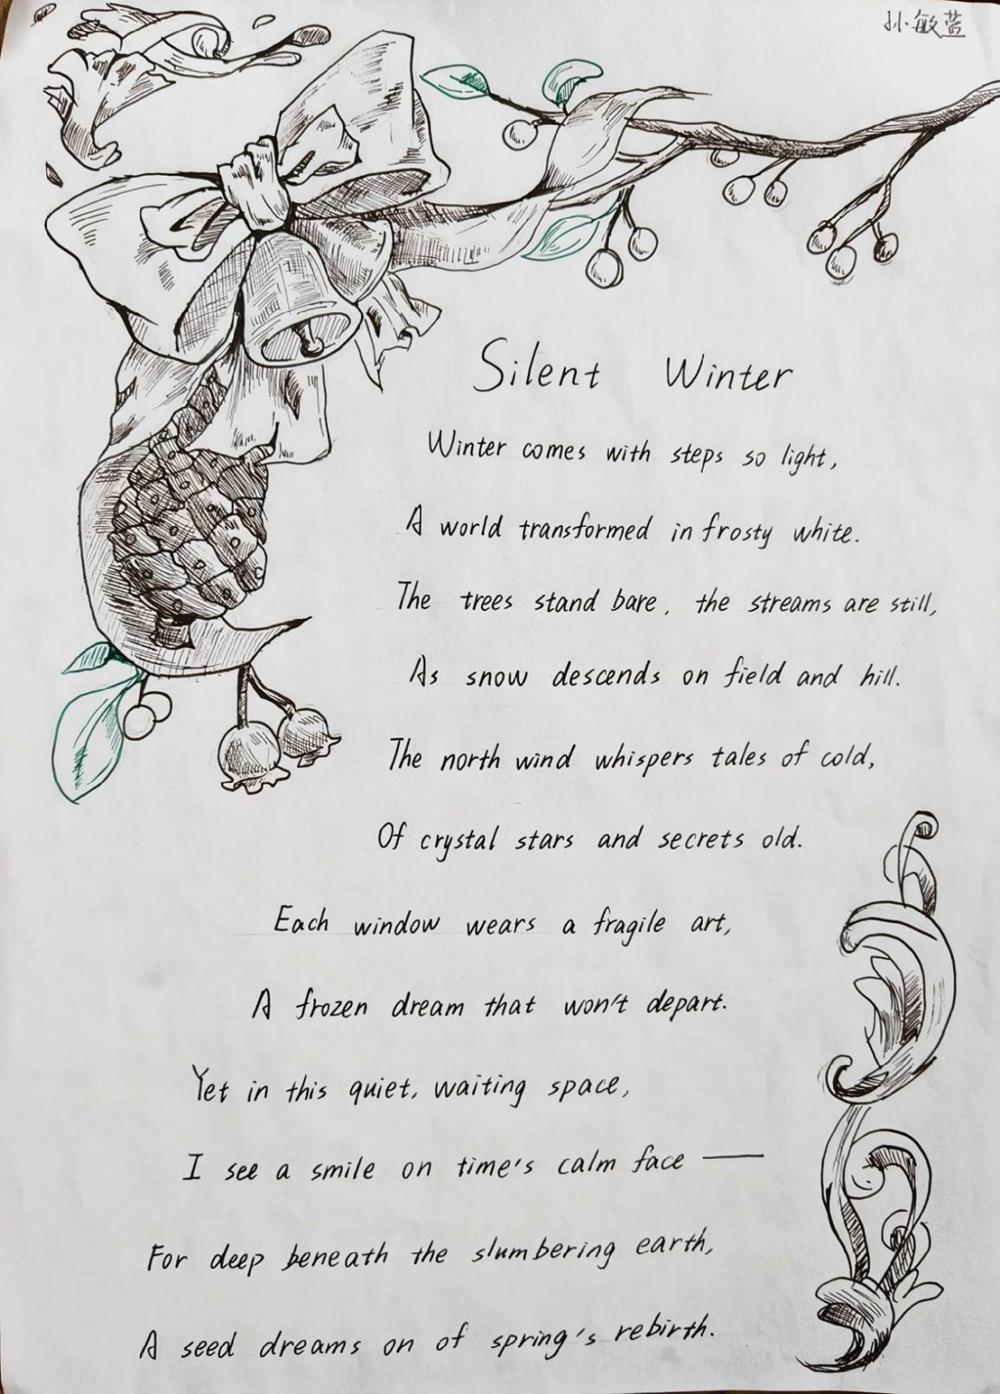 孙敏萱
Silent Winter
Winter comes with steps so light,
A world transformed in frosty white.
The trees stand bare, the streams are still,
As snow descends on field and hill.
The north wind whispers tales of cold,
Of crystal stars and secrets old.
Each window wears a fragile art,
A frozen dream that won't depart.
Yet in this quiet, waiting space,
I see a smile on time's calm face —
For deep beneath the slumbering earth,
A seed dreams on of spring's rebirth.